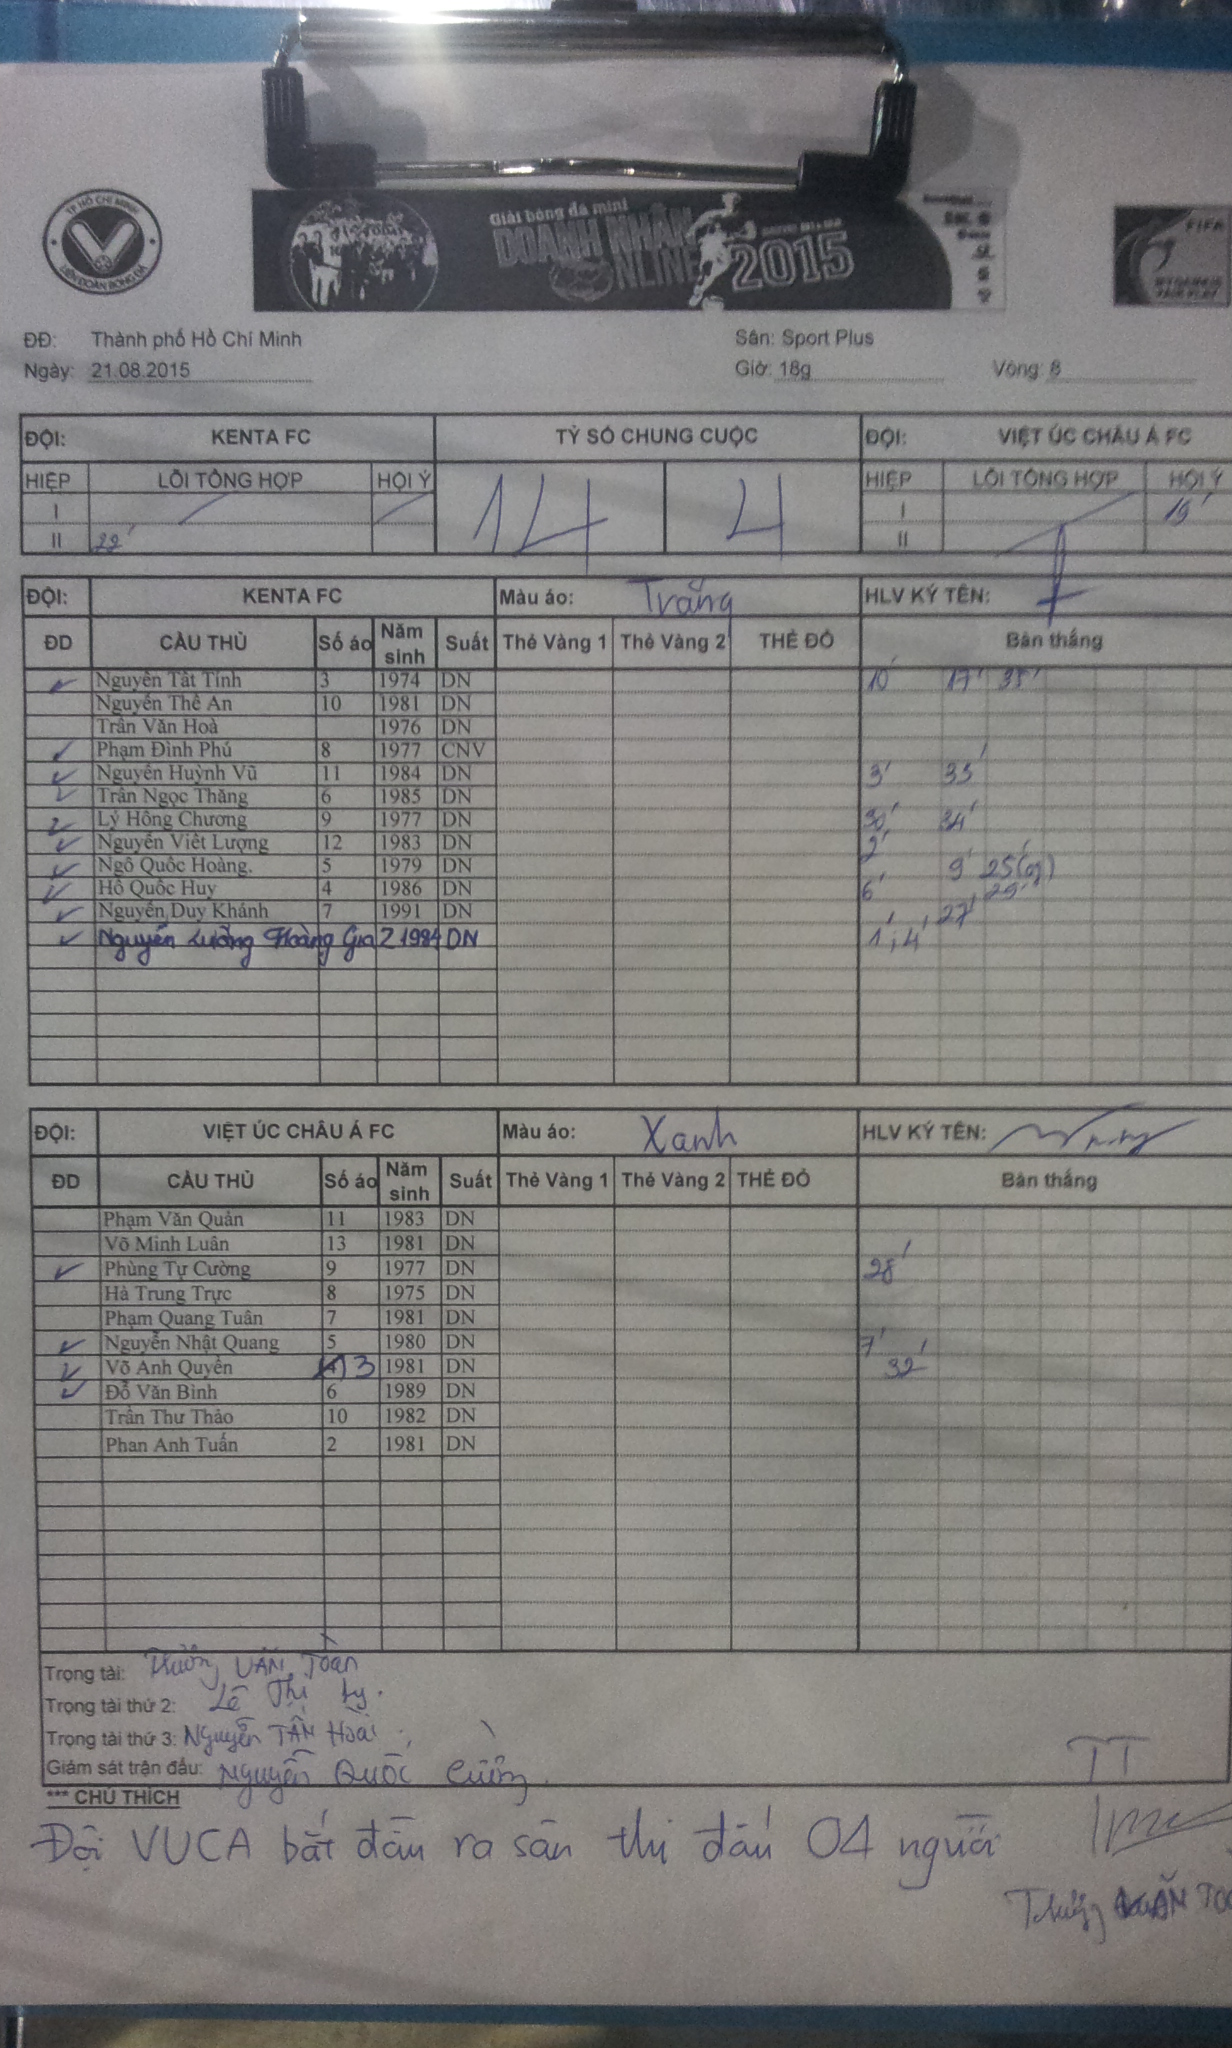 TP HỒ CHÍ MINH
LIÊN ĐOÀN BÓNG ĐÁ
Giải bóng đá mini
DOANH NHÂN
NLINE 2015
FIFA
ĐĐ: Thành phố Hồ Chí Minh Sân: Sport Plus
Ngày: 21.08.2015 Giờ: 18g Vòng: 8
ĐỘI: KENTA FC TỶ SỐ CHUNG CUỘC ĐỘI: VIỆT ÚC CHÂU Á FC
HIỆP LỖI TỔNG HỢP HỘI Ý 14 4 HIỆP LỖI TỔNG HỢP HỘI Ý
I I 19'
II 22' II
ĐỘI: KENTA FC Màu áo: Trắng HLV KÝ TÊN:
ĐD CẦU THỦ Số áo Năm sinh Suất Thẻ Vàng 1 Thẻ Vàng 2 THẺ ĐỎ Bàn thắng
Nguyễn Tất Tính 3 1974 DN 10' 17' 35'
Nguyễn Thế An 10 1981 DN
Trần Văn Hoà 1976 DN
Phạm Đình Phú 8 1977 CNV
Nguyễn Huỳnh Vũ 11 1984 DN 3' 33'
Trần Ngọc Thăng 6 1985 DN
Lý Hồng Chương 9 1977 DN 30' 34'
Nguyễn Viết Lượng 12 1983 DN 2'
Ngô Quốc Hoàng. 5 1979 DN 9' 25'(og)
Hồ Quốc Huy 4 1986 DN 6' 29'
Nguyễn Duy Khánh 7 1991 DN 27'
Nguyễn Lưỡng Hoàng Gia 2 1984 DN 1'; 4'
ĐỘI: VIỆT ÚC CHÂU Á FC Màu áo: Xanh HLV KÝ TÊN:
ĐD CẦU THỦ Số áo Năm sinh Suất Thẻ Vàng 1 Thẻ Vàng 2 THẺ ĐỎ Bàn thắng
Phạm Văn Quản 11 1983 DN
Võ Minh Luân 13 1981 DN
Phùng Tự Cường 9 1977 DN 28'
Hà Trung Trực 8 1975 DN
Phạm Quang Tuân 7 1981 DN
Nguyễn Nhật Quang 5 1980 DN 7'
Võ Anh Quyền 3 1981 DN 32'
Đỗ Văn Bình 6 1989 DN
Trần Thư Thảo 10 1982 DN
Phan Anh Tuấn 2 1981 DN
Trọng tài: VĂN Toàn
Trọng tài thứ 2: Lê Thị Ly.
Trọng tài thứ 3: Nguyễn TẤN Hoài
Giám sát trận đấu: Nguyễn Quốc Cường.
TT
*** CHÚ THÍCH
Đội VUCA bắt đầu ra sân thi đấu 04 người